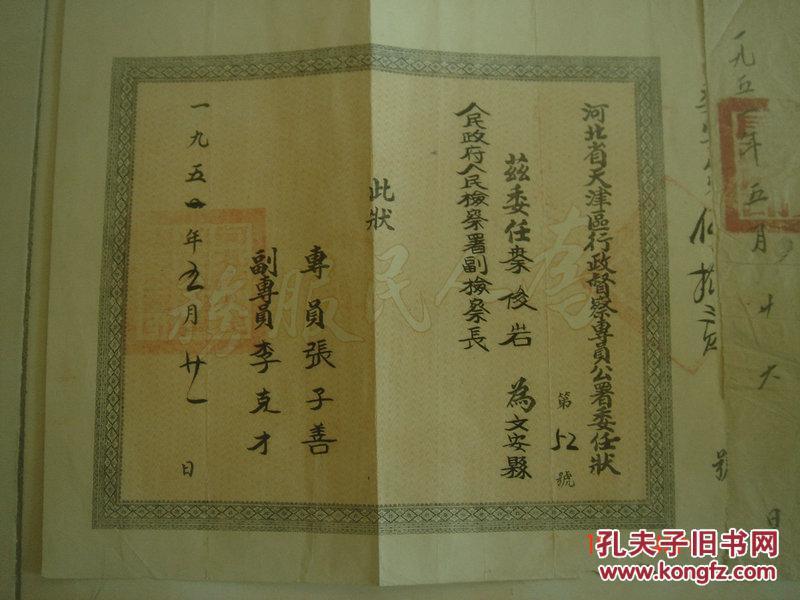 河北省天津區行政督察專員公署委任狀
第52號
茲委任 俊岩 為文安縣
人民政府人民檢察署副檢察長
此狀
專員張子善
副專員李克才
一九五 年五月廿一日
為人民服務
一九五 年五月廿六日
號
孔夫子旧书网
www.kongfz.com